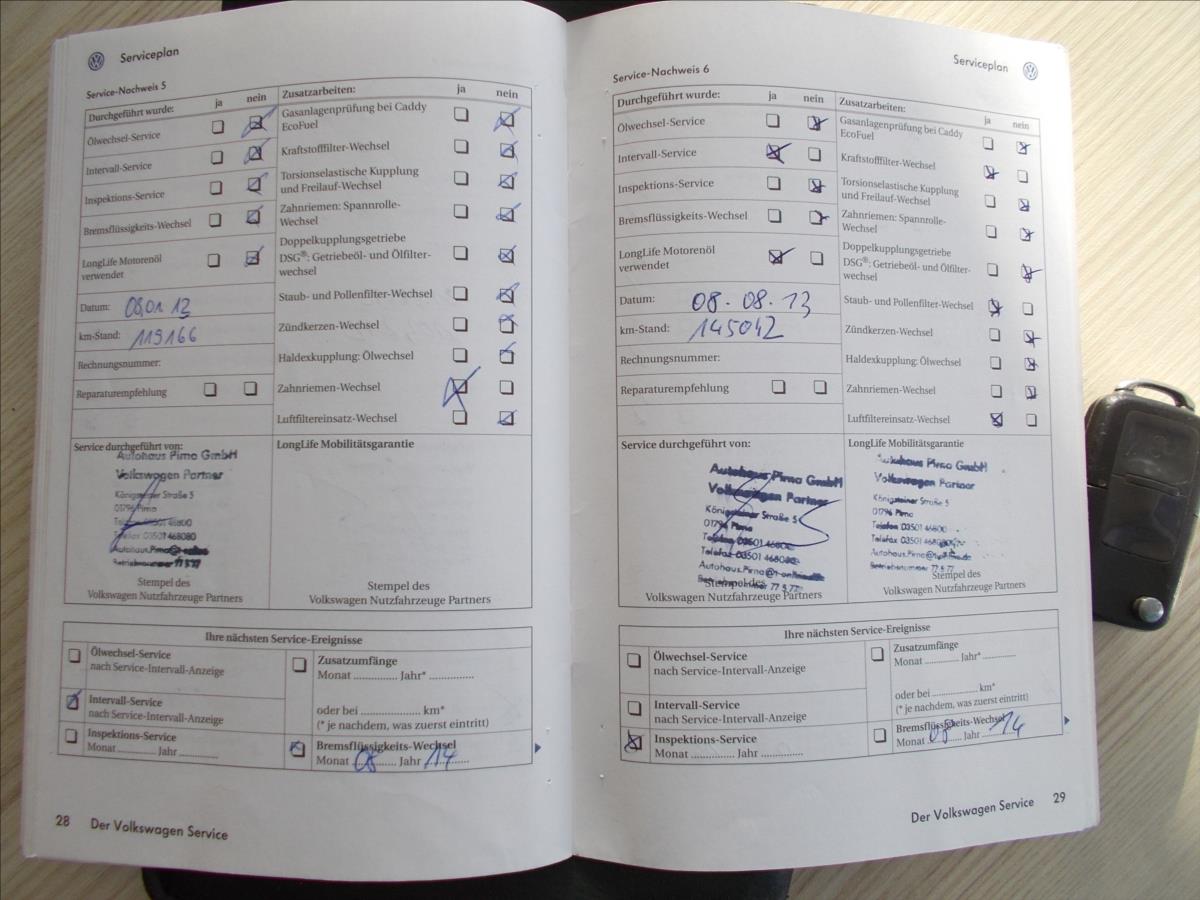 Serviceplan
Service-Nachweis 5
Durchgeführt wurde: ja nein
Ölwechsel-Service
Intervall-Service
Inspektions-Service
Bremsflüssigkeits-Wechsel
LongLife Motorenöl
verwendet
Datum: 08.01.13
km-Stand: 119166
Rechnungsnummer:
Reparaturempfehlung
Zusatzarbeiten: ja nein
Gasanlagenprüfung bei Caddy
EcoFuel
Kraftstofffilter-Wechsel
Torsionselastische Kupplung
und Freilauf-Wechsel
Zahnriemen: Spannrolle-
Wechsel
Doppelkupplungsgetriebe
DSG®: Getriebeöl- und Ölfilter-
wechsel
Staub- und Pollenfilter-Wechsel
Zündkerzen-Wechsel
Haldexkupplung: Ölwechsel
Zahnriemen-Wechsel
Luftfiltereinsatz-Wechsel
Service durchgeführt von:
Autohaus Pirna GmbH
Volkswagen Partner
Königsteiner Straße 5
01796 Pirna
Telefon 03501 46800
Telefax 03501 468080
Stempel des
Volkswagen Nutzfahrzeuge Partners
LongLife Mobilitätsgarantie
Stempel des
Volkswagen Nutzfahrzeuge Partners
Ihre nächsten Service-Ereignisse
Ölwechsel-Service
nach Service-Intervall-Anzeige
Intervall-Service
nach Service-Intervall-Anzeige
Inspektions-Service
Monat ............... Jahr .............
Zusatzumfänge
Monat ............... Jahr* ...............
oder bei .................... km*
(* je nachdem, was zuerst eintritt)
Bremsflüssigkeits-Wechsel
Monat 08 Jahr 14
28 Der Volkswagen Service
Serviceplan
Service-Nachweis 6
Durchgeführt wurde: ja nein
Ölwechsel-Service
Intervall-Service
Inspektions-Service
Bremsflüssigkeits-Wechsel
LongLife Motorenöl
verwendet
Datum: 08.08.13
km-Stand: 145042
Rechnungsnummer:
Reparaturempfehlung
Zusatzarbeiten: ja nein
Gasanlagenprüfung bei Caddy
EcoFuel
Kraftstofffilter-Wechsel
Torsionselastische Kupplung
und Freilauf-Wechsel
Zahnriemen: Spannrolle-
Wechsel
Doppelkupplungsgetriebe
DSG®: Getriebeöl- und Ölfilter-
wechsel
Staub- und Pollenfilter-Wechsel
Zündkerzen-Wechsel
Haldexkupplung: Ölwechsel
Zahnriemen-Wechsel
Luftfiltereinsatz-Wechsel
Service durchgeführt von:
Autohaus Pirna GmbH
Volkswagen Partner
Königsteiner Straße 5
01796 Pirna
Telefon 03501 46800
Telefax 03501 468080
Stempel des
Volkswagen Nutzfahrzeuge Partners
LongLife Mobilitätsgarantie
Autohaus Pirna GmbH
Volkswagen Partner
Königsteiner Straße 5
01796 Pirna
Telefon 03501 46800
Telefax 03501 468080
Betriebsnummer 77 5 77
Stempel des
Volkswagen Nutzfahrzeuge Partners
Ihre nächsten Service-Ereignisse
Ölwechsel-Service
nach Service-Intervall-Anzeige
Intervall-Service
nach Service-Intervall-Anzeige
Inspektions-Service
Monat ............... Jahr ..............
Zusatzumfänge
Monat ............ Jahr* ............
oder bei .................... km*
(* je nachdem, was zuerst eintritt)
Bremsflüssigkeits-Wechsel
Monat 08 Jahr 14
Der Volkswagen Service 29